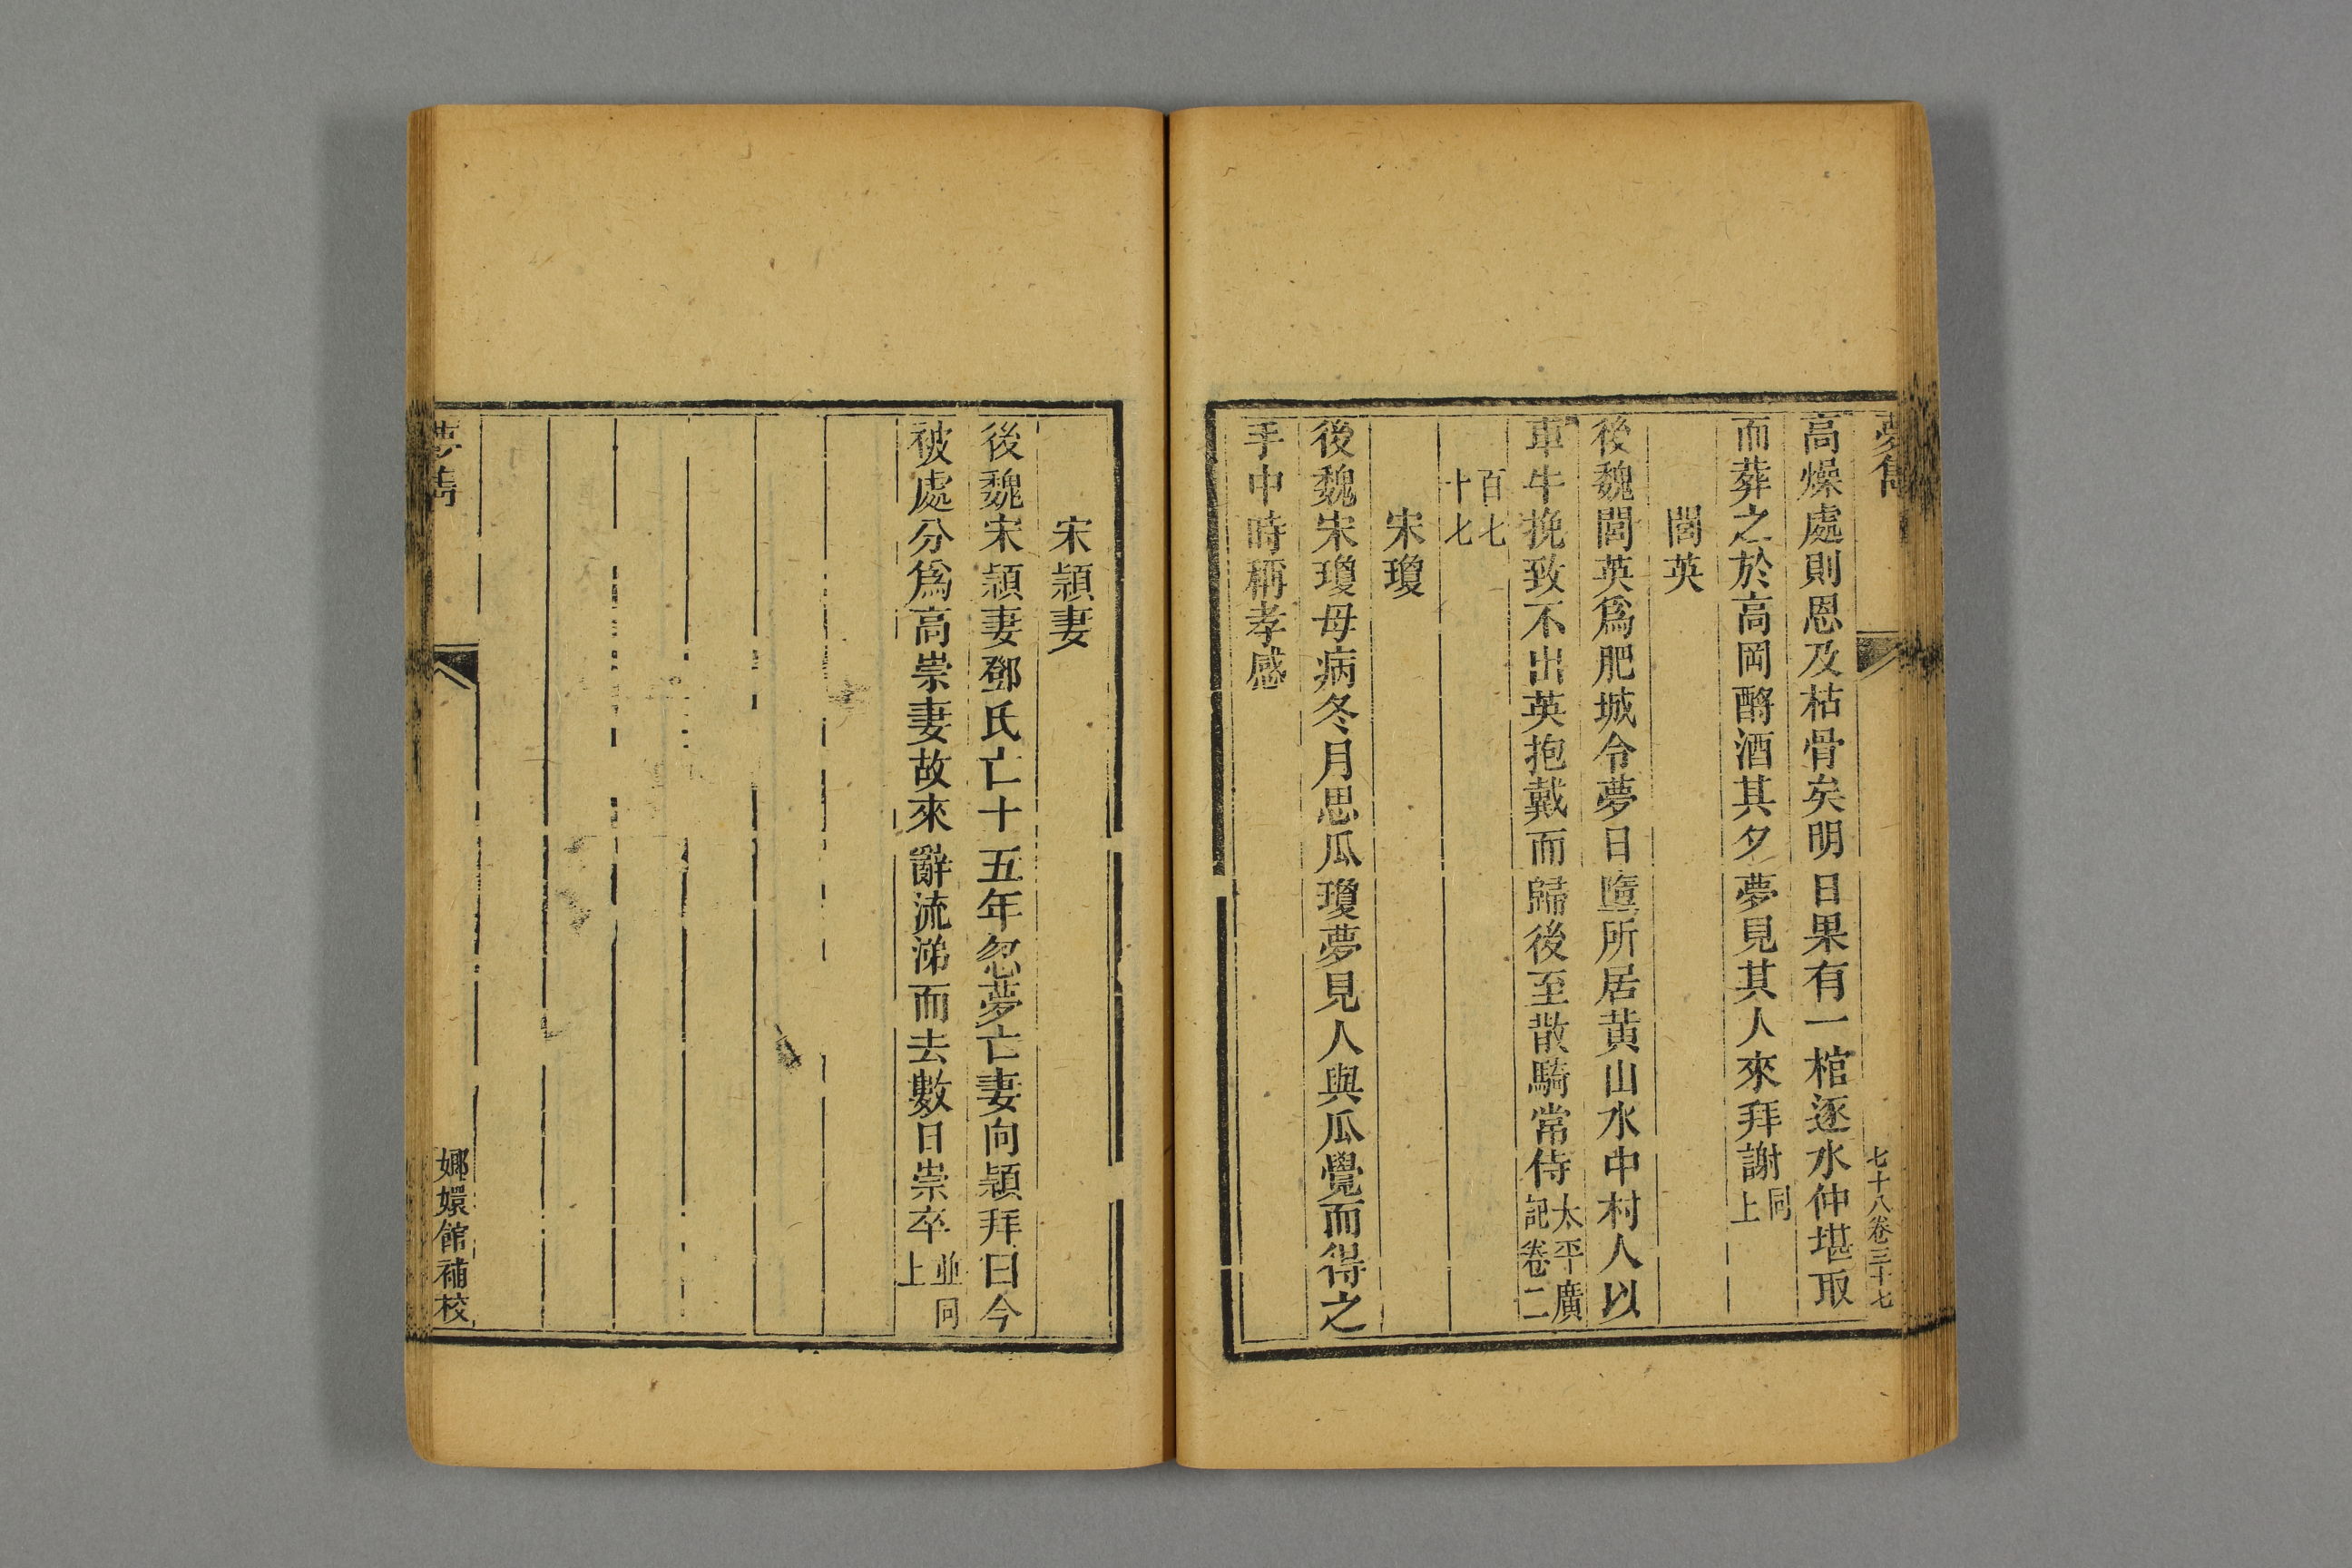 夢雋
七十八卷三十七
高燥處則恩及枯骨矣明日果有一棺逐水仲堪取
而葬之於高岡酹酒其夕夢見其人來拜謝同上
閻英
後魏閻英爲肥城令夢日墮所居黄山水中村人以
車牛挽致不出英抱戴而歸後至散騎常侍太平廣記卷二
百七十七
宋瓊
後魏宋瓊母病冬月思瓜瓊夢見人與瓜覺而得之
手中時稱孝感
宋頴妻
後魏宋頴妻鄧氏亡十五年忽夢亡妻向頴拜曰今
被處分爲高崇妻故來辭流涕而去數日崇卒並同上
夢雋
嫏嬛館補校